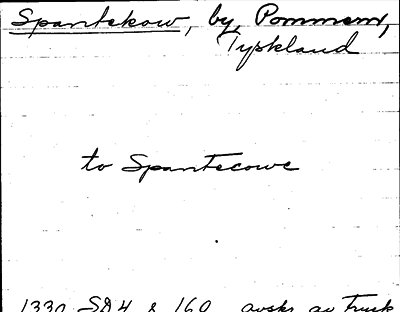 Spantekow, by, Pommern,
Tyskland
to Spantecowe
1330 SD 4 s 160 avskr av Truck